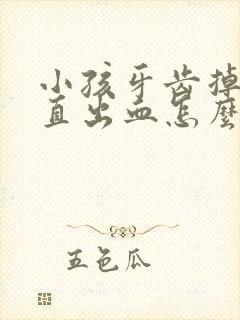 小孩牙齿掉
直出血怎麽
五色瓜